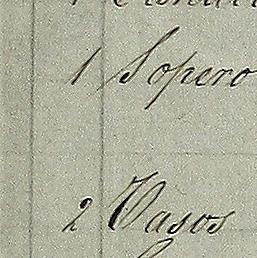 1 Sopero
2 Vasos